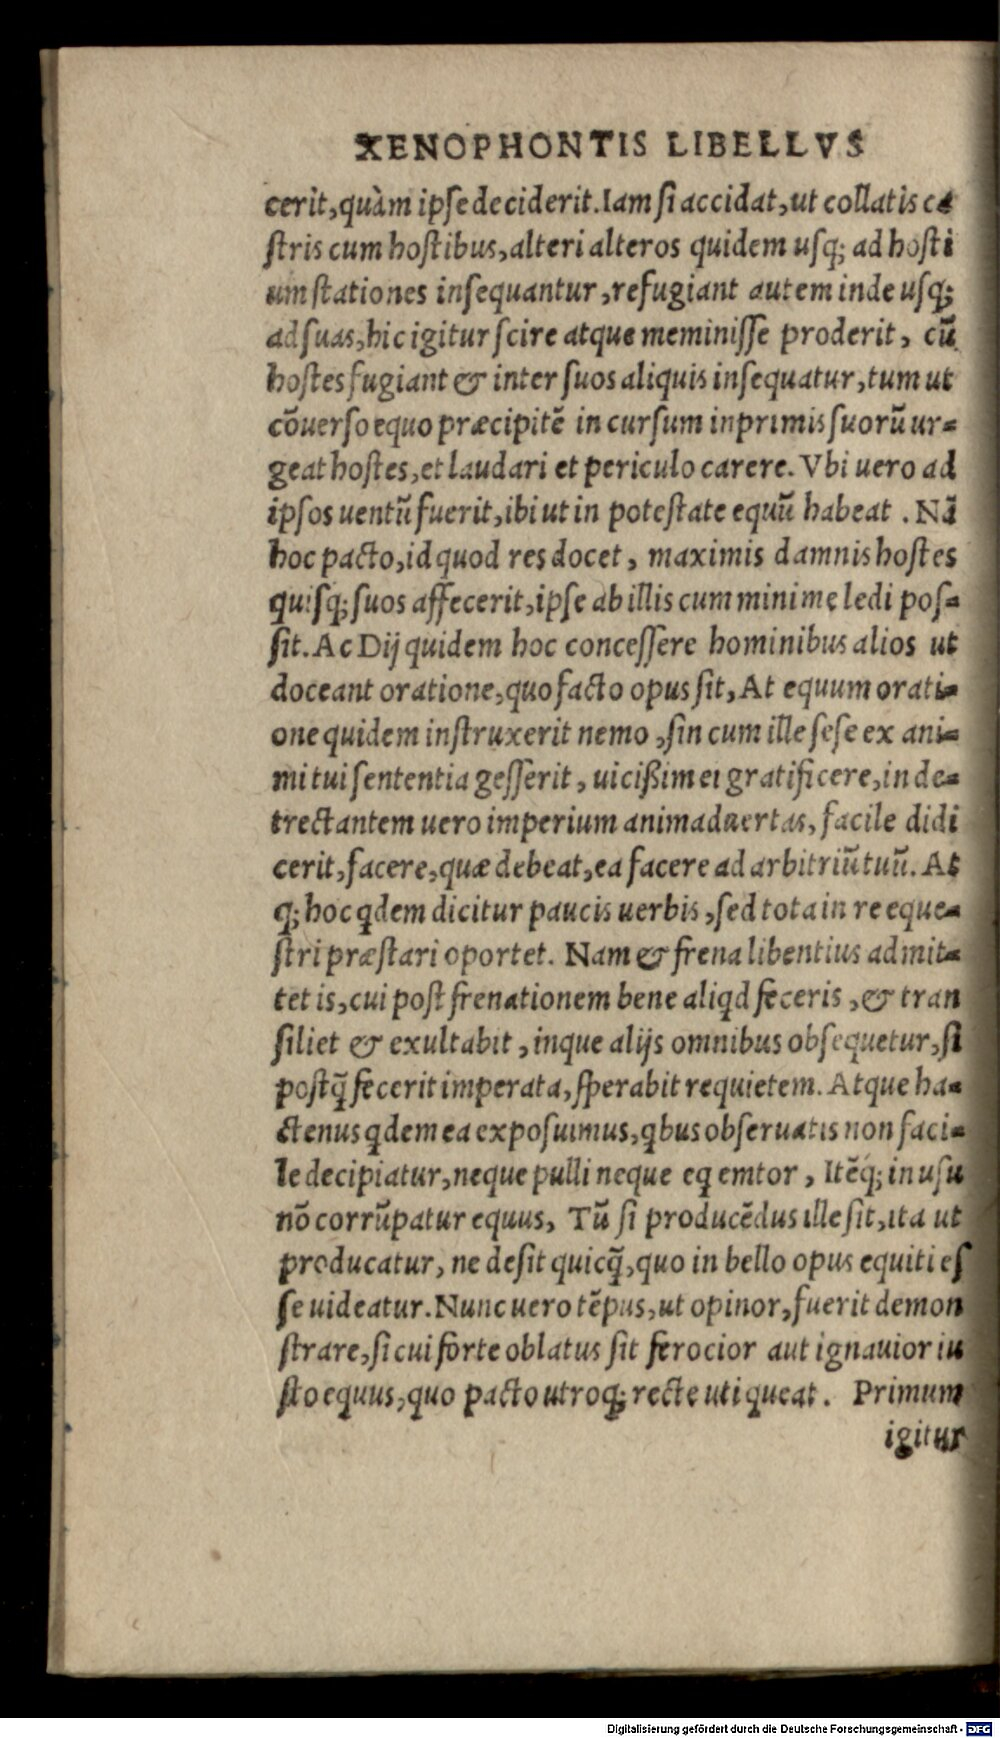 XENOPHONTIS LIBELLVS
cerit, quàm ipse deciderit. Iam si accidat, ut collatis ca
stris cum hostibus, alteri alteros quidem usq; ad hosti
um stationes insequantur, refugiant autem inde usq;
ad suas, hic igitur scire atque meminisse proderit, cū
hostes fugiant & inter suos aliquis insequatur, tum ut
cōuerso equo præcipitē in cursum inprimis suorū ur-
geat hostes, et laudari et periculo carere. Vbi uero ad
ipsos uentū fuerit, ibi ut in potestate equū habeat. Nā
hoc pacto, id quod res docet, maximis damnis hostes
quisq; suos affecerit, ipse ab illis cum minime ledi pos-
sit. Ac Dij quidem hoc concessere hominibus alios ut
doceant oratione, quo facto opus sit, At equum orati-
one quidem instruxerit nemo, sin cum ille sese ex ani-
mi tui sententia gesserit, uicißim ei gratificere, in de-
trectantem uero imperium animaduertas, facile didi
cerit, facere, quæ debeat, ea facere ad arbitriū tuū. At
q; hoc qdem dicitur paucis uerbis, sed tota in re eque-
stri præstari oportet. Nam & frena libentius admit-
tet is, cui post frenationem bene aliqd feceris, & tran
siliet & exultabit, inque alijs omnibus obsequetur, si
postq̃ fecerit imperata, sperabit requietem. Atque ha-
ctenus qdem ea exposuimus, qbus obseruatis non faci-
le decipiatur, neque pulli neque eq emtor, Itēq; in usu
nō corrūpatur equus, Tū si producēdus ille sit, ita ut
producatur, ne desit quicq̃, quo in bello opus equiti es
se uideatur. Nunc uero tēpus, ut opinor, fuerit demon
strare, si cui forte oblatus sit ferocior aut ignauior iu
sto equus, quo pacto utroq; recte uti queat. Primum
igitur
Digitalisierung gefördert durch die Deutsche Forschungsgemeinschaft - DFG